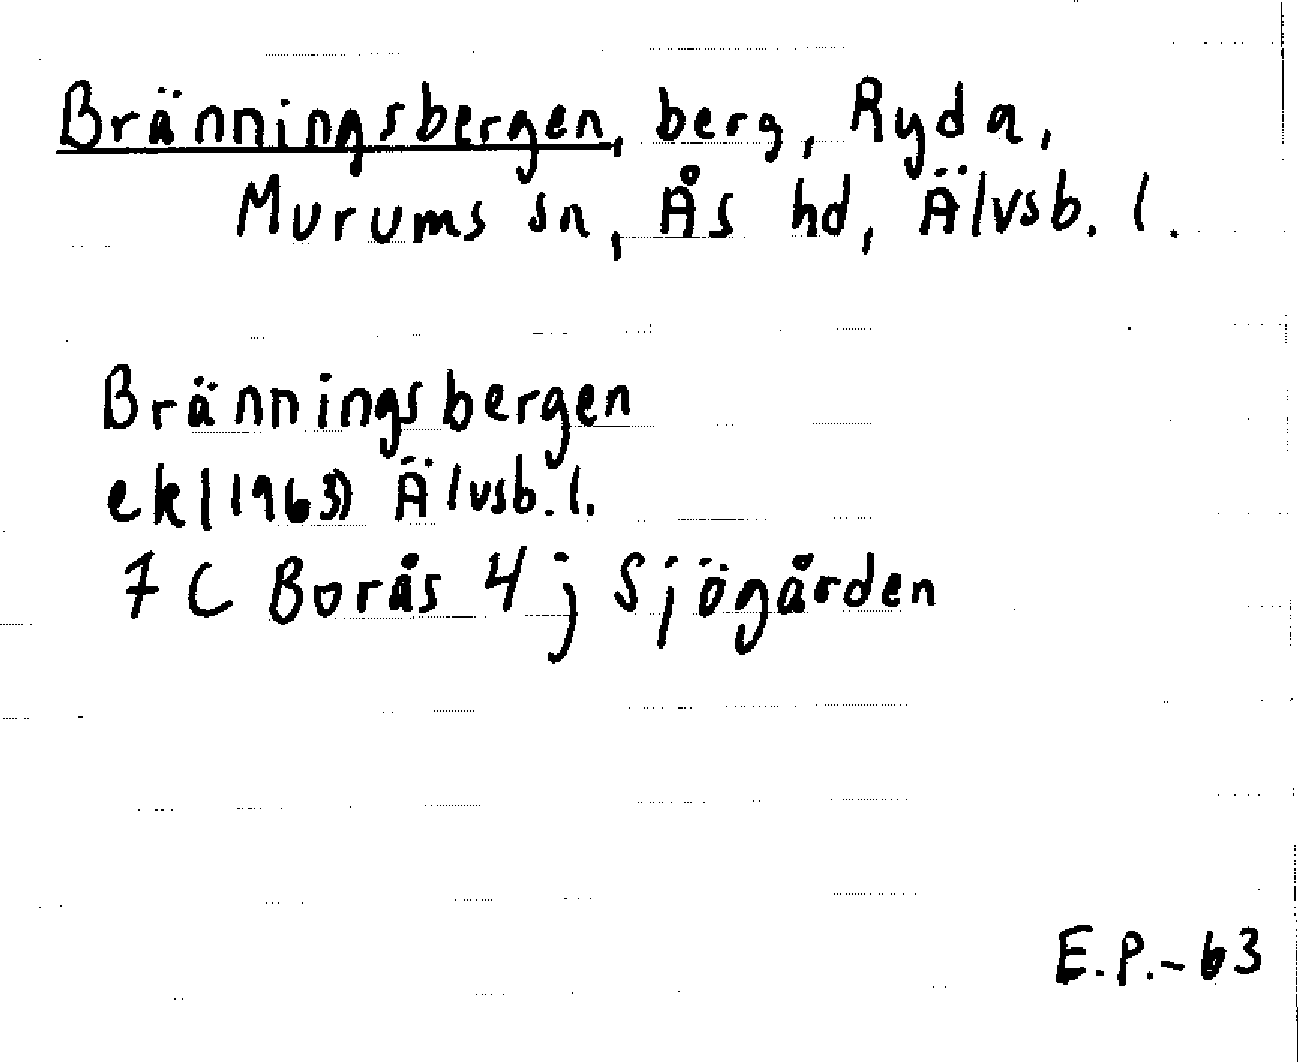 Bränningsbergen, berg, Ryda,
Murums sn, Ås hd, Älvsb. l.
Bränningsbergen
ekl (1963) Älvsb. l.
7 C Borås 4 j Sjögården
E.P.-63